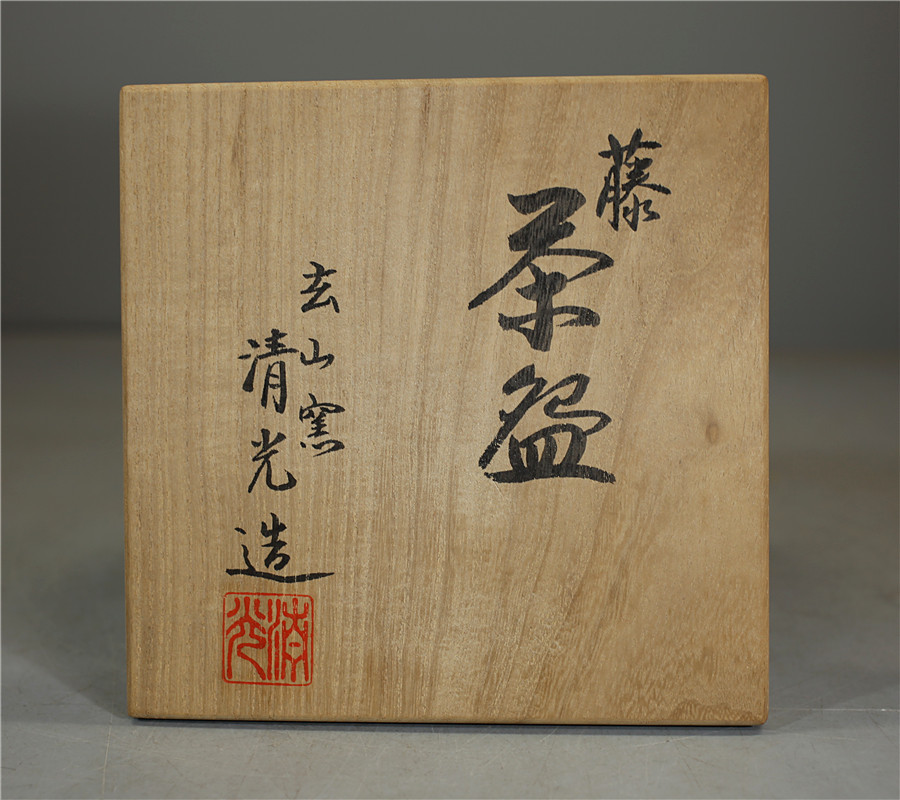 藤
茶盌
玄山窯
清光造
清光